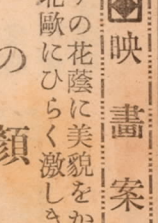 映畫案
の花蔭に美貌をか
北歐にひらく激しき
の
顔